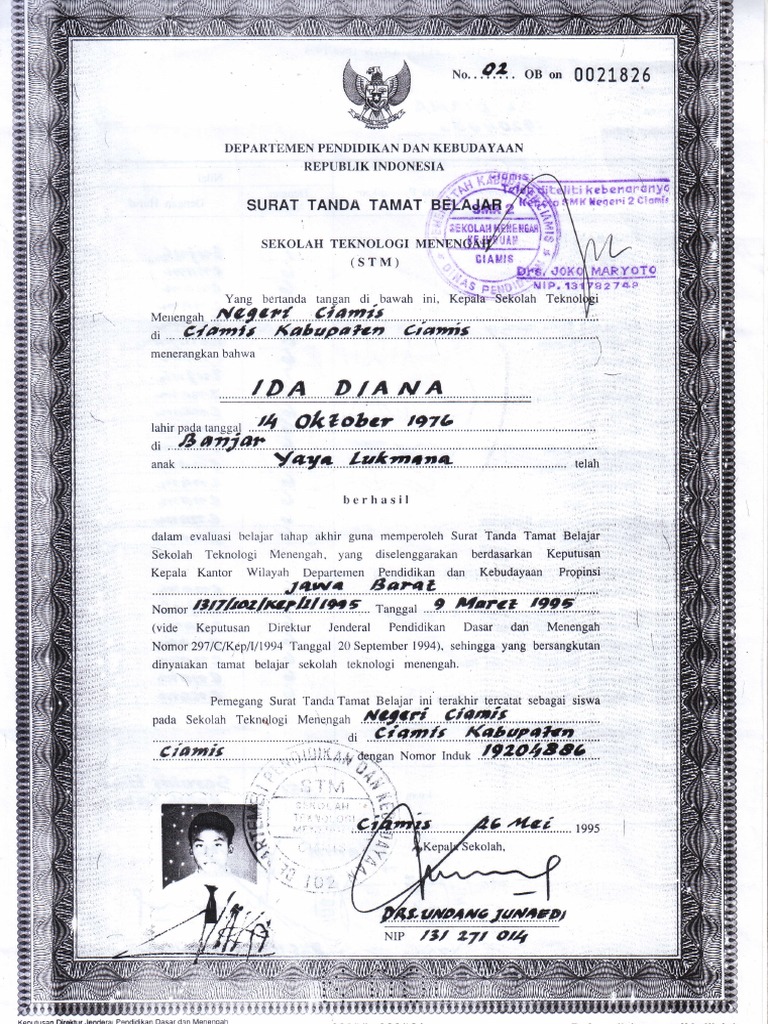 No. 02 OB on 0021826
DEPARTEMEN PENDIDIKAN DAN KEBUDAYAAN
REPUBLIK INDONESIA
Ciamis,
Telah diteliti kebenaranya
Kepala SMK Negeri 2 Ciamis
SURAT TANDA TAMAT BELAJAR
SMK 2
SEKOLAH MENENGAH
KEJURUAN
CIAMIS
DINAS PENDIDIKAN
SEKOLAH TEKNOLOGI MENENGAH
(STM)
Drs. JOKO MARYOTO
NIP. 131782749
Yang bertanda tangan di bawah ini, Kepala Sekolah Teknologi
Menengah Negeri Ciamis
di Ciamis Kabupaten Ciamis
menerangkan bahwa
IDA DIANA
lahir pada tanggal 14 Oktober 1976
di Banjar
anak Yaya Lukmana telah
berhasil
dalam evaluasi belajar tahap akhir guna memperoleh Surat Tanda Tamat Belajar
Sekolah Teknologi Menengah, yang diselenggarakan berdasarkan Keputusan
Kepala Kantor Wilayah Departemen Pendidikan dan Kebudayaan Propinsi
Jawa Barat
Nomor 1317/102/Kep/I/1995 Tanggal 9 Maret 1995
(vide Keputusan Direktur Jenderal Pendidikan Dasar dan Menengah
Nomor 297/C/Kep/I/1994 Tanggal 20 September 1994), sehingga yang bersangkutan
dinyatakan tamat belajar sekolah teknologi menengah.
Pemegang Surat Tanda Tamat Belajar ini terakhir tercatat sebagai siswa
pada Sekolah Teknologi Menengah Negeri Ciamis
di Ciamis Kabupaten
Ciamis dengan Nomor Induk 19204886
DEPARTEMEN PENDIDIKAN DAN KEBUDAYAAN
STM
SEKOLAH
TEKNOLOGI
MENENGAH
CIAMIS
102
Ciamis 26 Mei 1995
Kepala Sekolah,
DRS. UNDANG JUNAEDI
NIP 131 271 014
Keputusan Direktur Jenderal Pendidikan Dasar dan Menengah